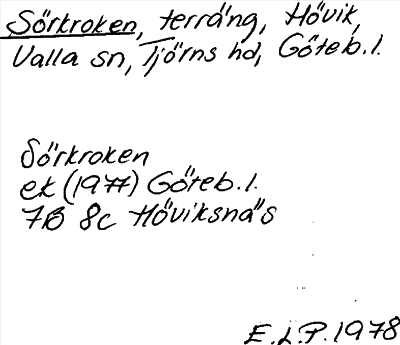 Sörkroken, terräng, Hövik,
Valla sn, Tjörns hd, Göteb.l.
Sörkroken
ek (1977) Göteb.l.
7B 8c Höviksnäs
E.L.P. 1978